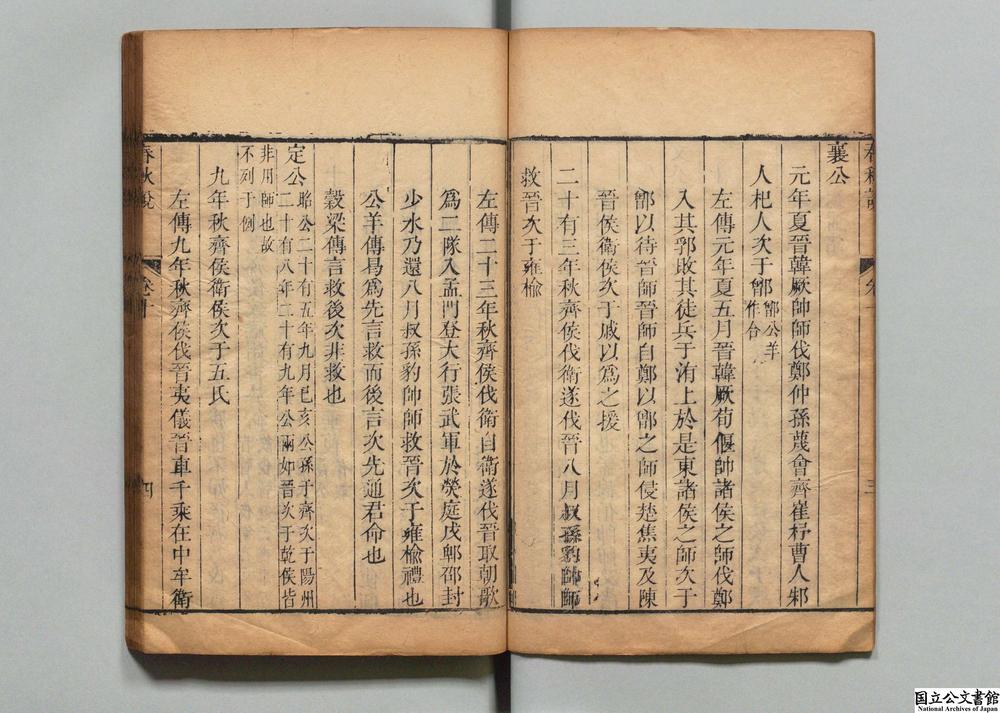 襄公
元年夏晉韓厥帥師伐鄭仲孫蔑會齊崔杼曹人邾
人杞人次于鄫鄫公羊作合
左傳元年夏五月晉韓厥荀偃帥諸侯之師伐鄭
入其郛敗其徒兵于洧上於是東諸侯之師次于
鄫以待晉師晉師自鄭以鄫之師侵楚焦夷及陳
晉侯衛侯次于戚以為之援
二十有三年秋齊侯伐衛遂伐晉八月叔孫豹帥師
救晉次于雍榆
三
左傳二十三年秋齊侯伐衛自衛遂伐晉取朝歌
為二隊入孟門登大行張武軍於熒庭戍郫邵封
少水乃還八月叔孫豹帥師救晉次于雍榆禮也
公羊傳曷為先言救而後言次先通君命也
穀梁傳言救後次非救也
定公昭公二十有五年九月己亥公孫于齊次于陽州
二十有八年二十有九年公兩如晉次于乾侯皆
非用師也故
不列于例
九年秋齊侯衛侯次于五氏
左傳九年秋齊侯伐晉夷儀晉車千乘在中牟衛
春秋說
四
国立公文書館
National Archives of Japan